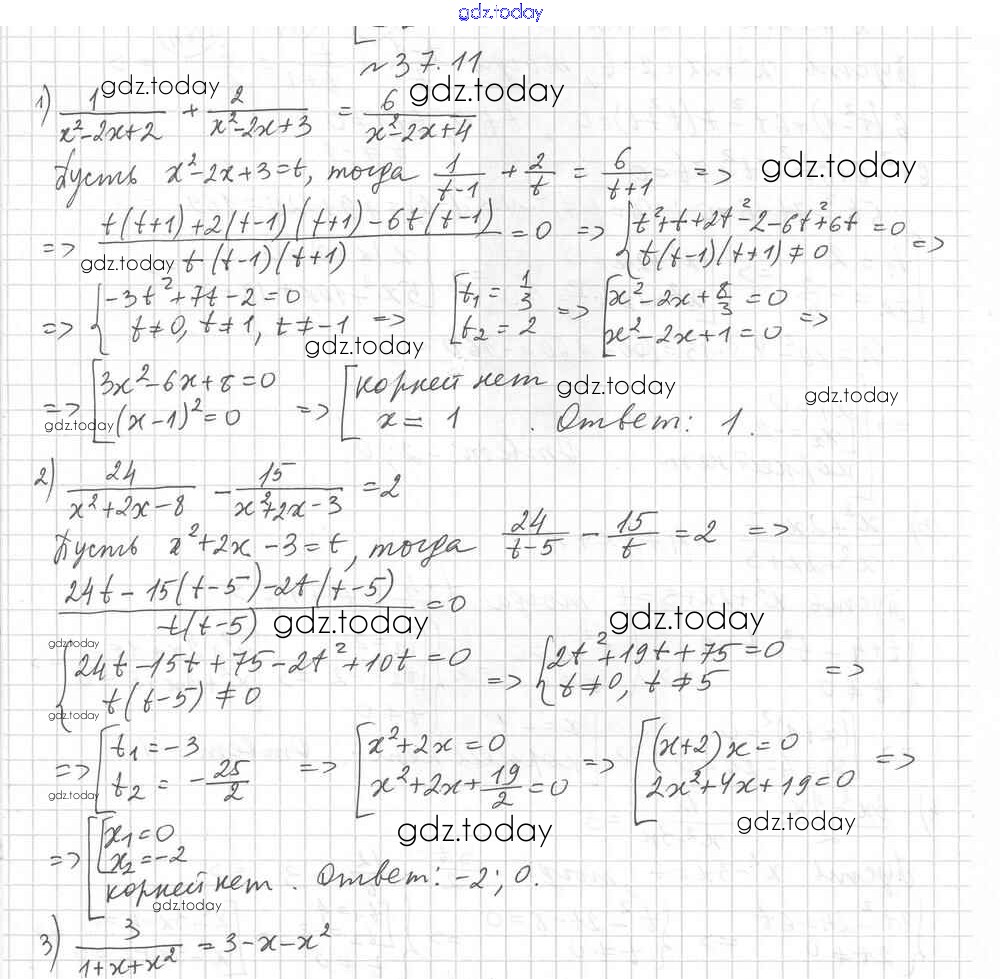 gdz.today
№37.11
1) 1/(x²-2x+2) + 2/(x²-2x+3) = 6/(x²-2x+4)
gdz.today gdz.today
Пусть x²-2x+3=t, тогда 1/(t-1) + 2/t = 6/(t+1) =>
gdz.today
=> (t(t+1)+2(t-1)(t+1)-6t(t-1))/(t(t-1)(t+1)) = 0 => { t²+t+2t²-2-6t²+6t = 0; t(t-1)(t+1) ≠ 0 =>
gdz.today
=> { -3t²+7t-2=0; t≠0, t≠1, t≠-1 => [ t₁ = 1/3; t₂ = 2 => [ x²-2x+8/3 = 0; x²-2x+1=0 =>
gdz.today
=> [ 3x²-6x+8=0; (x-1)²=0 => [ корней нет; x = 1 . Ответ: 1.
gdz.today gdz.today gdz.today
2) 24/(x²+2x-8) - 15/(x²+2x-3) = 2
Пусть x²+2x-3=t, тогда 24/(t-5) - 15/t = 2 =>
(24t-15(t-5)-2t(t-5))/(t(t-5)) = 0
gdz.today gdz.today
gdz.today
{ 24t-15t+75-2t²+10t=0; t(t-5)≠0 => { 2t²+19t+75=0; t≠0, t≠5 =>
gdz.today
=> [ t₁=-3; t₂ = -25/2 => [ x²+2x=0; x²+2x+19/2=0 => [ (x+2)x=0; 2x²+4x+19=0 =>
gdz.today gdz.today gdz.today
=> [ [ x₁=0; x₂=-2; корней нет . Ответ: -2; 0.
gdz.today
3) 3/(1+x+x²) = 3-x-x²